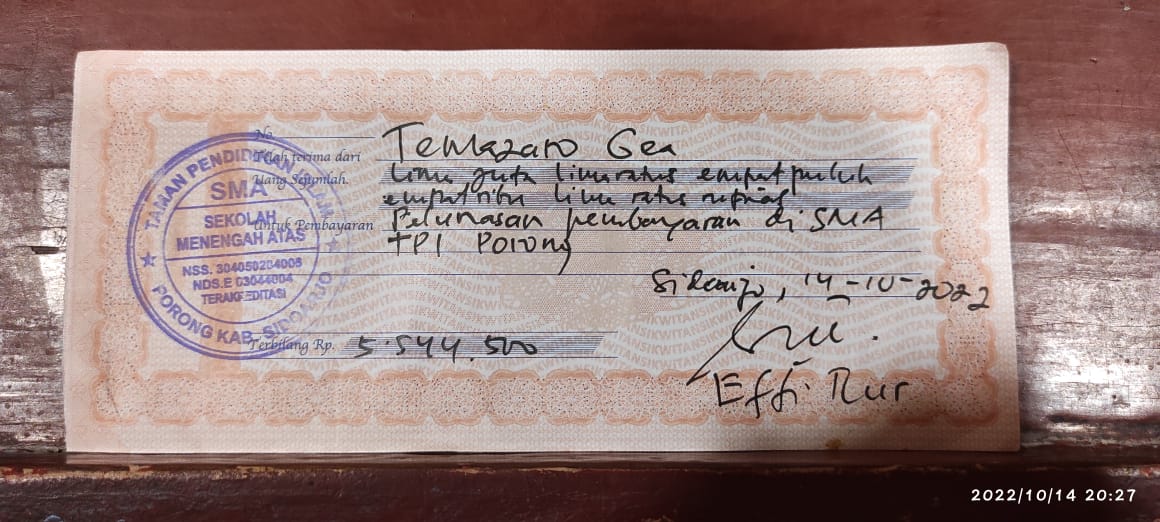 No.
Telah terima dari Temazaro Gea
Uang Sejumlah. Lima juta lima ratus empat puluh
empat ribu lima ratus rupiah
Untuk Pembayaran Pelunasan pembayaran di SMA
TPI Porong
Sidoarjo, 14-10-2022
Terbilang Rp. 5.544.500
Effi Nur
TAMAN PENDIDIKAN ISLAM
SMA
SEKOLAH
MENENGAH ATAS
NSS. 304050204005
NDS.E 03044004
TERAKREDITASI
PORONG KAB. SIDOARJO
2022/10/14 20:27